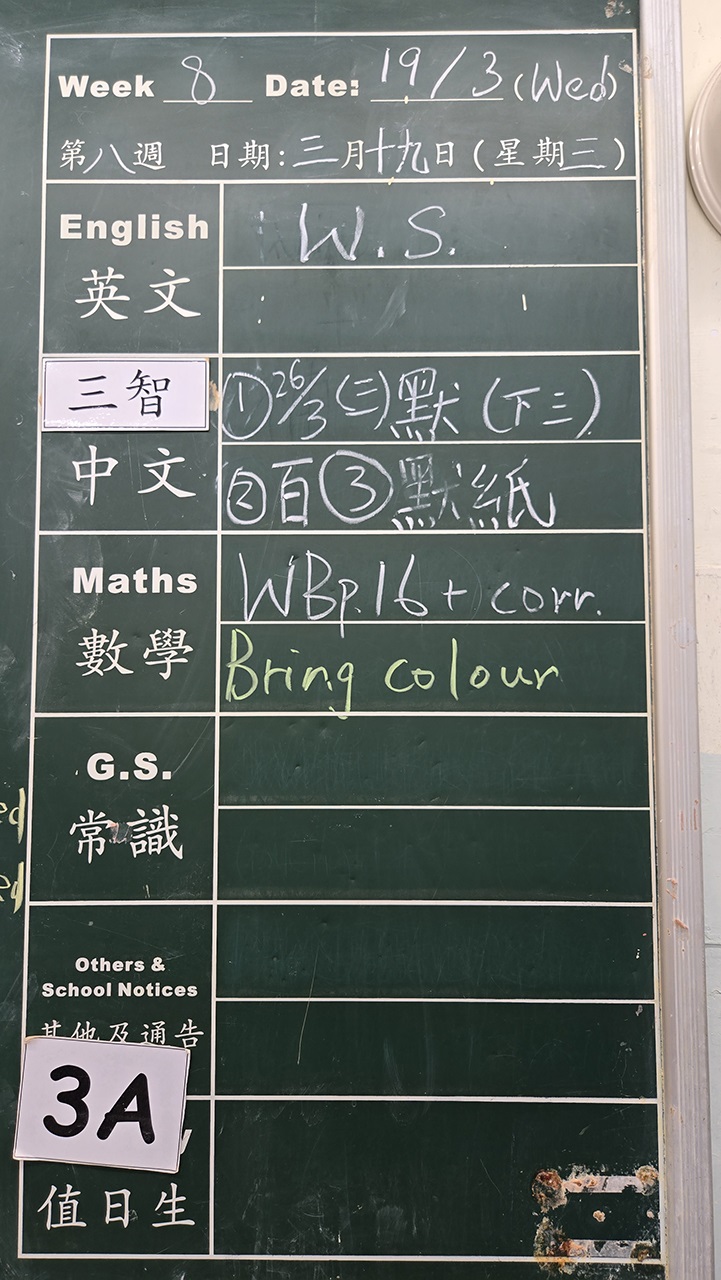 Week 8 Date: 19/3 (Wed)
第八週 日期:三月十九日(星期三)
English W.S.
英文
三智 ①26/3(三)默(下三)
中文 ②百③默紙
Maths WBp.16 + corr.
數學 Bring colour
G.S.
常識
Others &
School Notices
其他及通告
3A
值日生